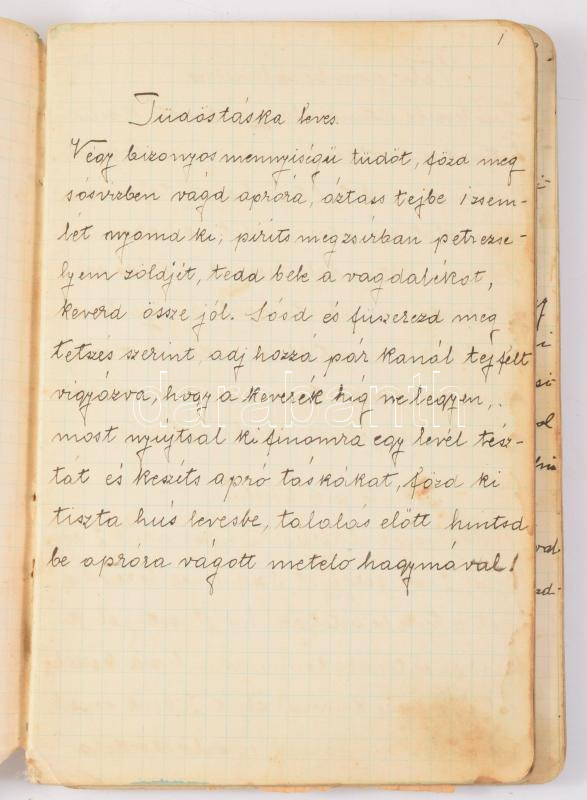 1
Tüdőstáska leves.
Végy bizonyos mennyiségű tüdőt, főzd meg
sósvizben vágd apróra, áztass tejbe 1 zsem-
lét nyomd ki, piríts meg zsírban petrezse-
lyem zöldjét, tedd bele a vagdalékot,
keverd össze jól. Sósd és fűszerezd meg
tetszés szerint, adj hozzá pár kanál tejfelt
vigyázva, hogy a keverék híg ne legyen,
most nyujtsál ki finomra egy levél tész-
tát és készíts apró táskákat, főzd ki
tiszta hús levesbe, tálalás előtt hintsd
be apróra vágott metélő hagymával!
darabanth